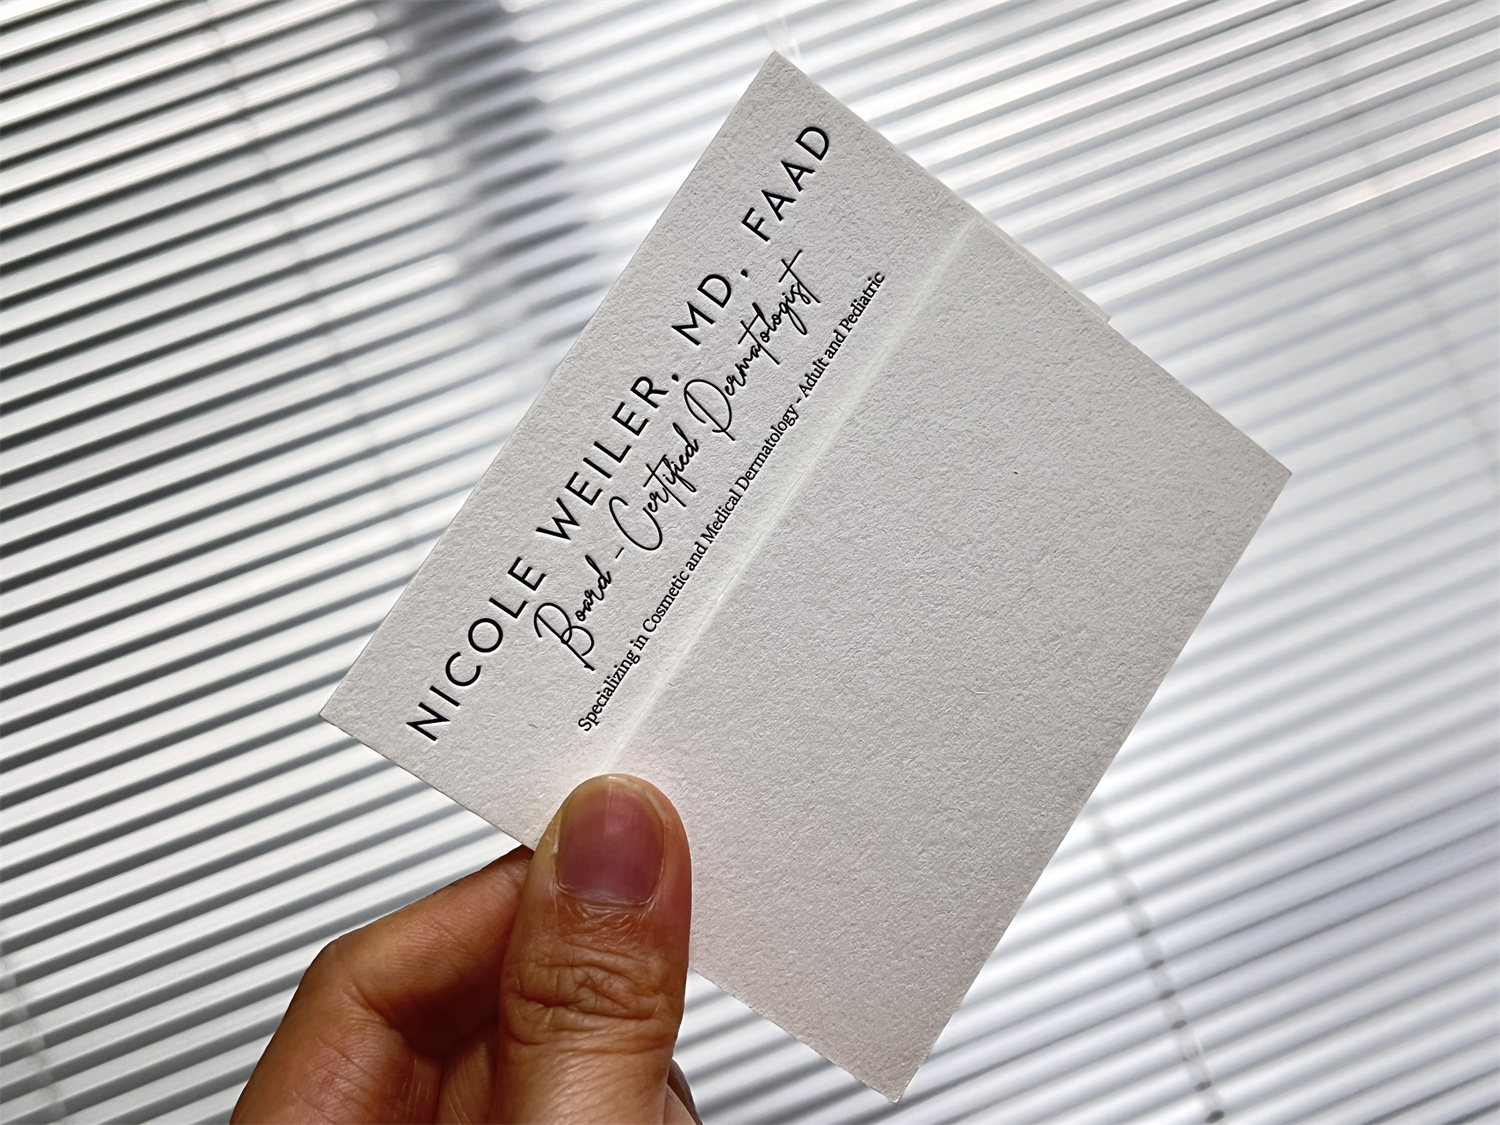 NICOLE WEILER, MD, FAAD
Board-Certified Dermatologist
Specializing in Cosmetic and Medical Dermatology - Adult and Pediatric